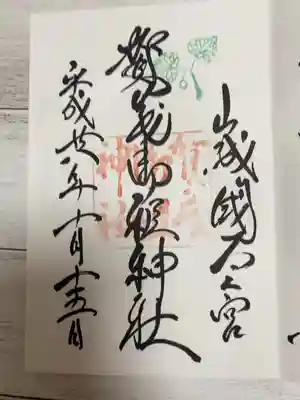 山城國一之宮
賀茂御祖神社
平成廿八年十月十五日